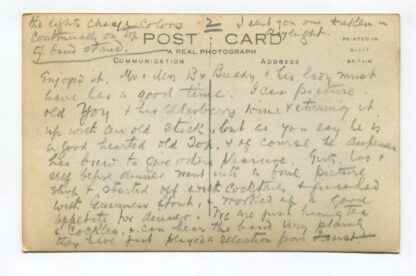 the lights change colors 2 I sent you one taken in
continually on top daylight.
of band stand.
POST CARD
A REAL PHOTOGRAPH
PRINTED IN
GREAT
BRITAIN
COMMUNICATION ADDRESS
Enjoyed it. Mr & Mrs B & Buddy, & his boy must
have has a good time. I can picture
old & his elderberry wine & stirring it
up with an old stick, but as you say he is
a good hearted old Top, & of course he dispenses
his brew to give others pleasure. &
self before dinner went into a fine picture
shop & started off with cocktails & finished
with Guinness stout, & worked up a good
appetite for dinner. We are just having tea
& cockles, & can hear the band very plainly
they have just played a selection from Faust